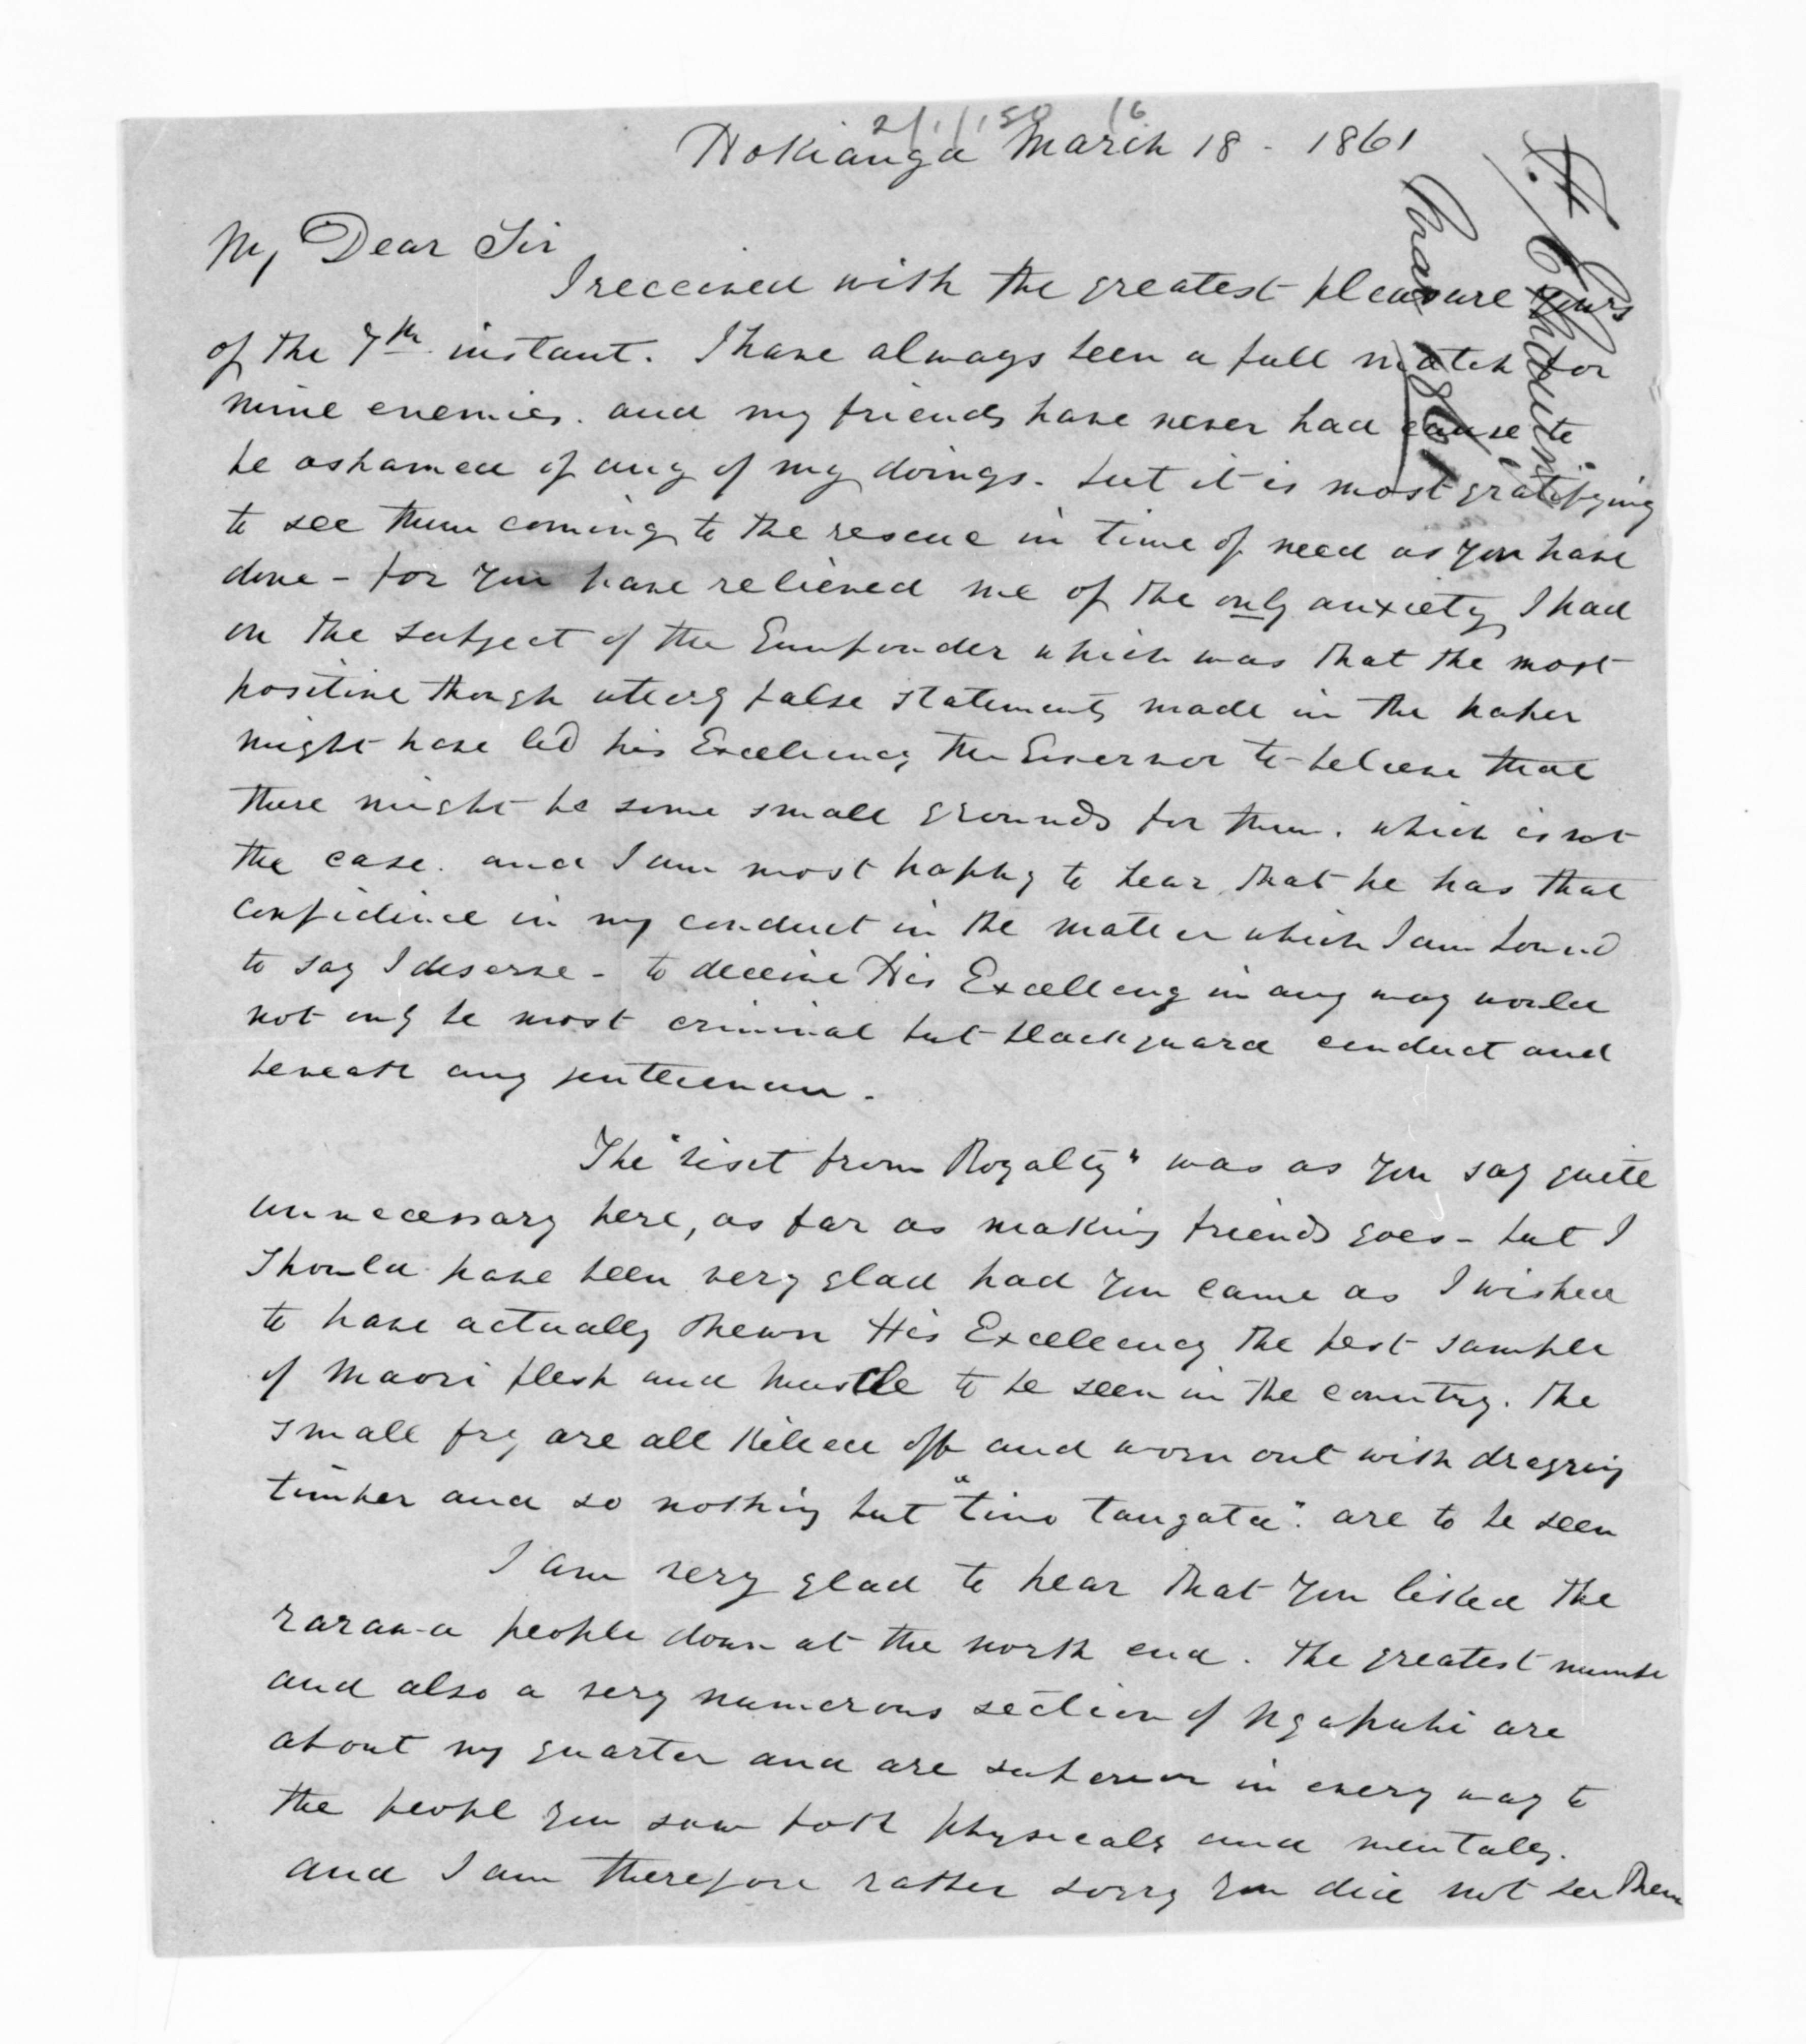 Hokianga March 18 - 1861
My Dear Sir
I received with the greatest pleasure yours
of the 7th instant. I have always been a full match for
mine enemies. and my friends have never had cause to
be ashamed of any of my doings - but it is most gratifying
to see them coming to the rescue in time of need as you have
done - for you have relieved me of the only anxiety I had
on the subject of the Gunpowder which was that the most
positive though uterly false statements made in the paper
might have led his Excellency the Governor to believe that
there might be some small grounds for them. which is not
the case. and I am most happy to hear that he has that
confidence in my conduct in the matter which I am bound
to say I deserve - to deceive His Excellency in any way would
not only be most criminal but blackguard conduct and
beneath any gentleman.
The "visit from Royalty" was as you say quite
unnecessary here, as far as making friends goes - but I
should have been very glad had you came as I wished
to have actually shewn His Excellency the best sample
of Maori flesh and muscle to be seen in the country. the
small fry are all killed off and worn out with dragging
timber and so nothing but "tino tangata". are to be seen
I am very glad to hear that you liked the
rarawa people down at the north end. the greatest numbe
and also a very numerous section of Ngapuhi are
about my quarter and are superior in every way to
the peopl you saw both physicaly and mentaly.
and I am therefore rather sorry you did not see them